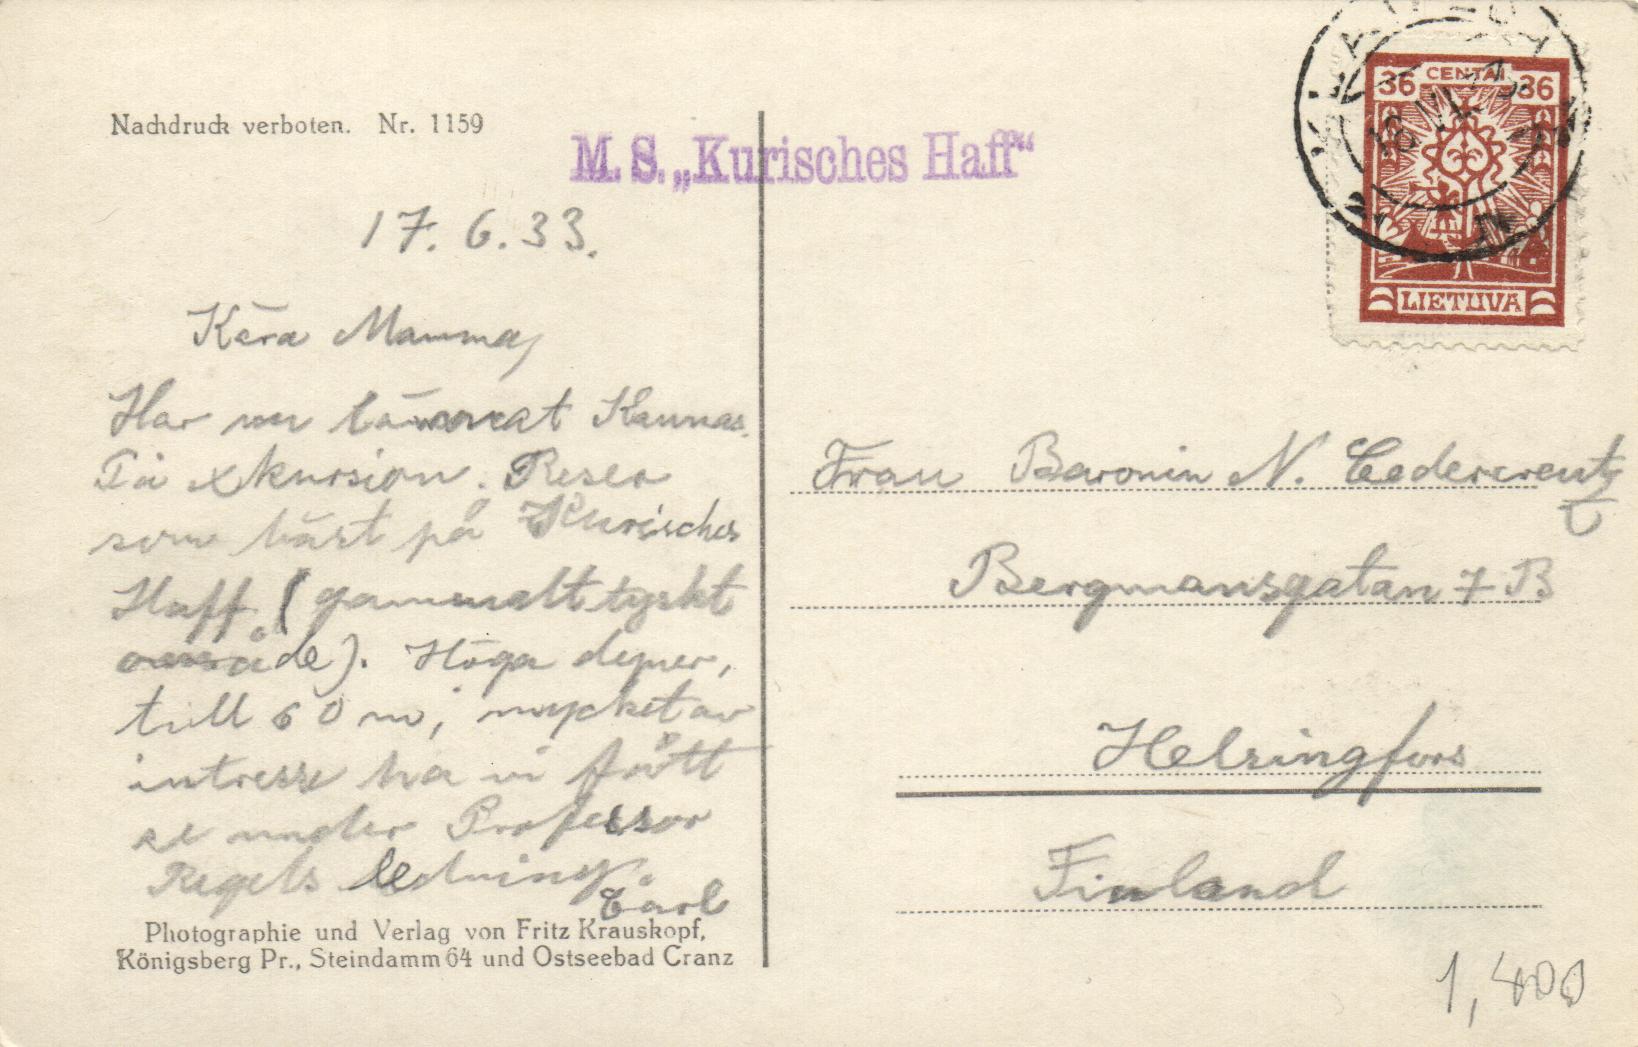 Nachdruck verboten. Nr. 1159
M. S. „Kurisches Haff“
17. 6. 33.
Kära Mamma,
Har nu lämnat Kaunas.
På exkursion. Reser
som bäst på Kurisches
Haff (gammalt tyskt
område). Höga dyner,
till 60 m, mycket av
intresse ha vi fått
se under Professor
Regels ledning.
Carl
Photographie und Verlag von Fritz Krauskopf,
Königsberg Pr., Steindamm 64 und Ostseebad Cranz
KLAIPĖDA
18 VI 33
36 CENTAI 36
LIETUVA
Frau Baronin N. Cedercreutz
Bergmansgatan 7 B
Helsingfors
Finland
1,400